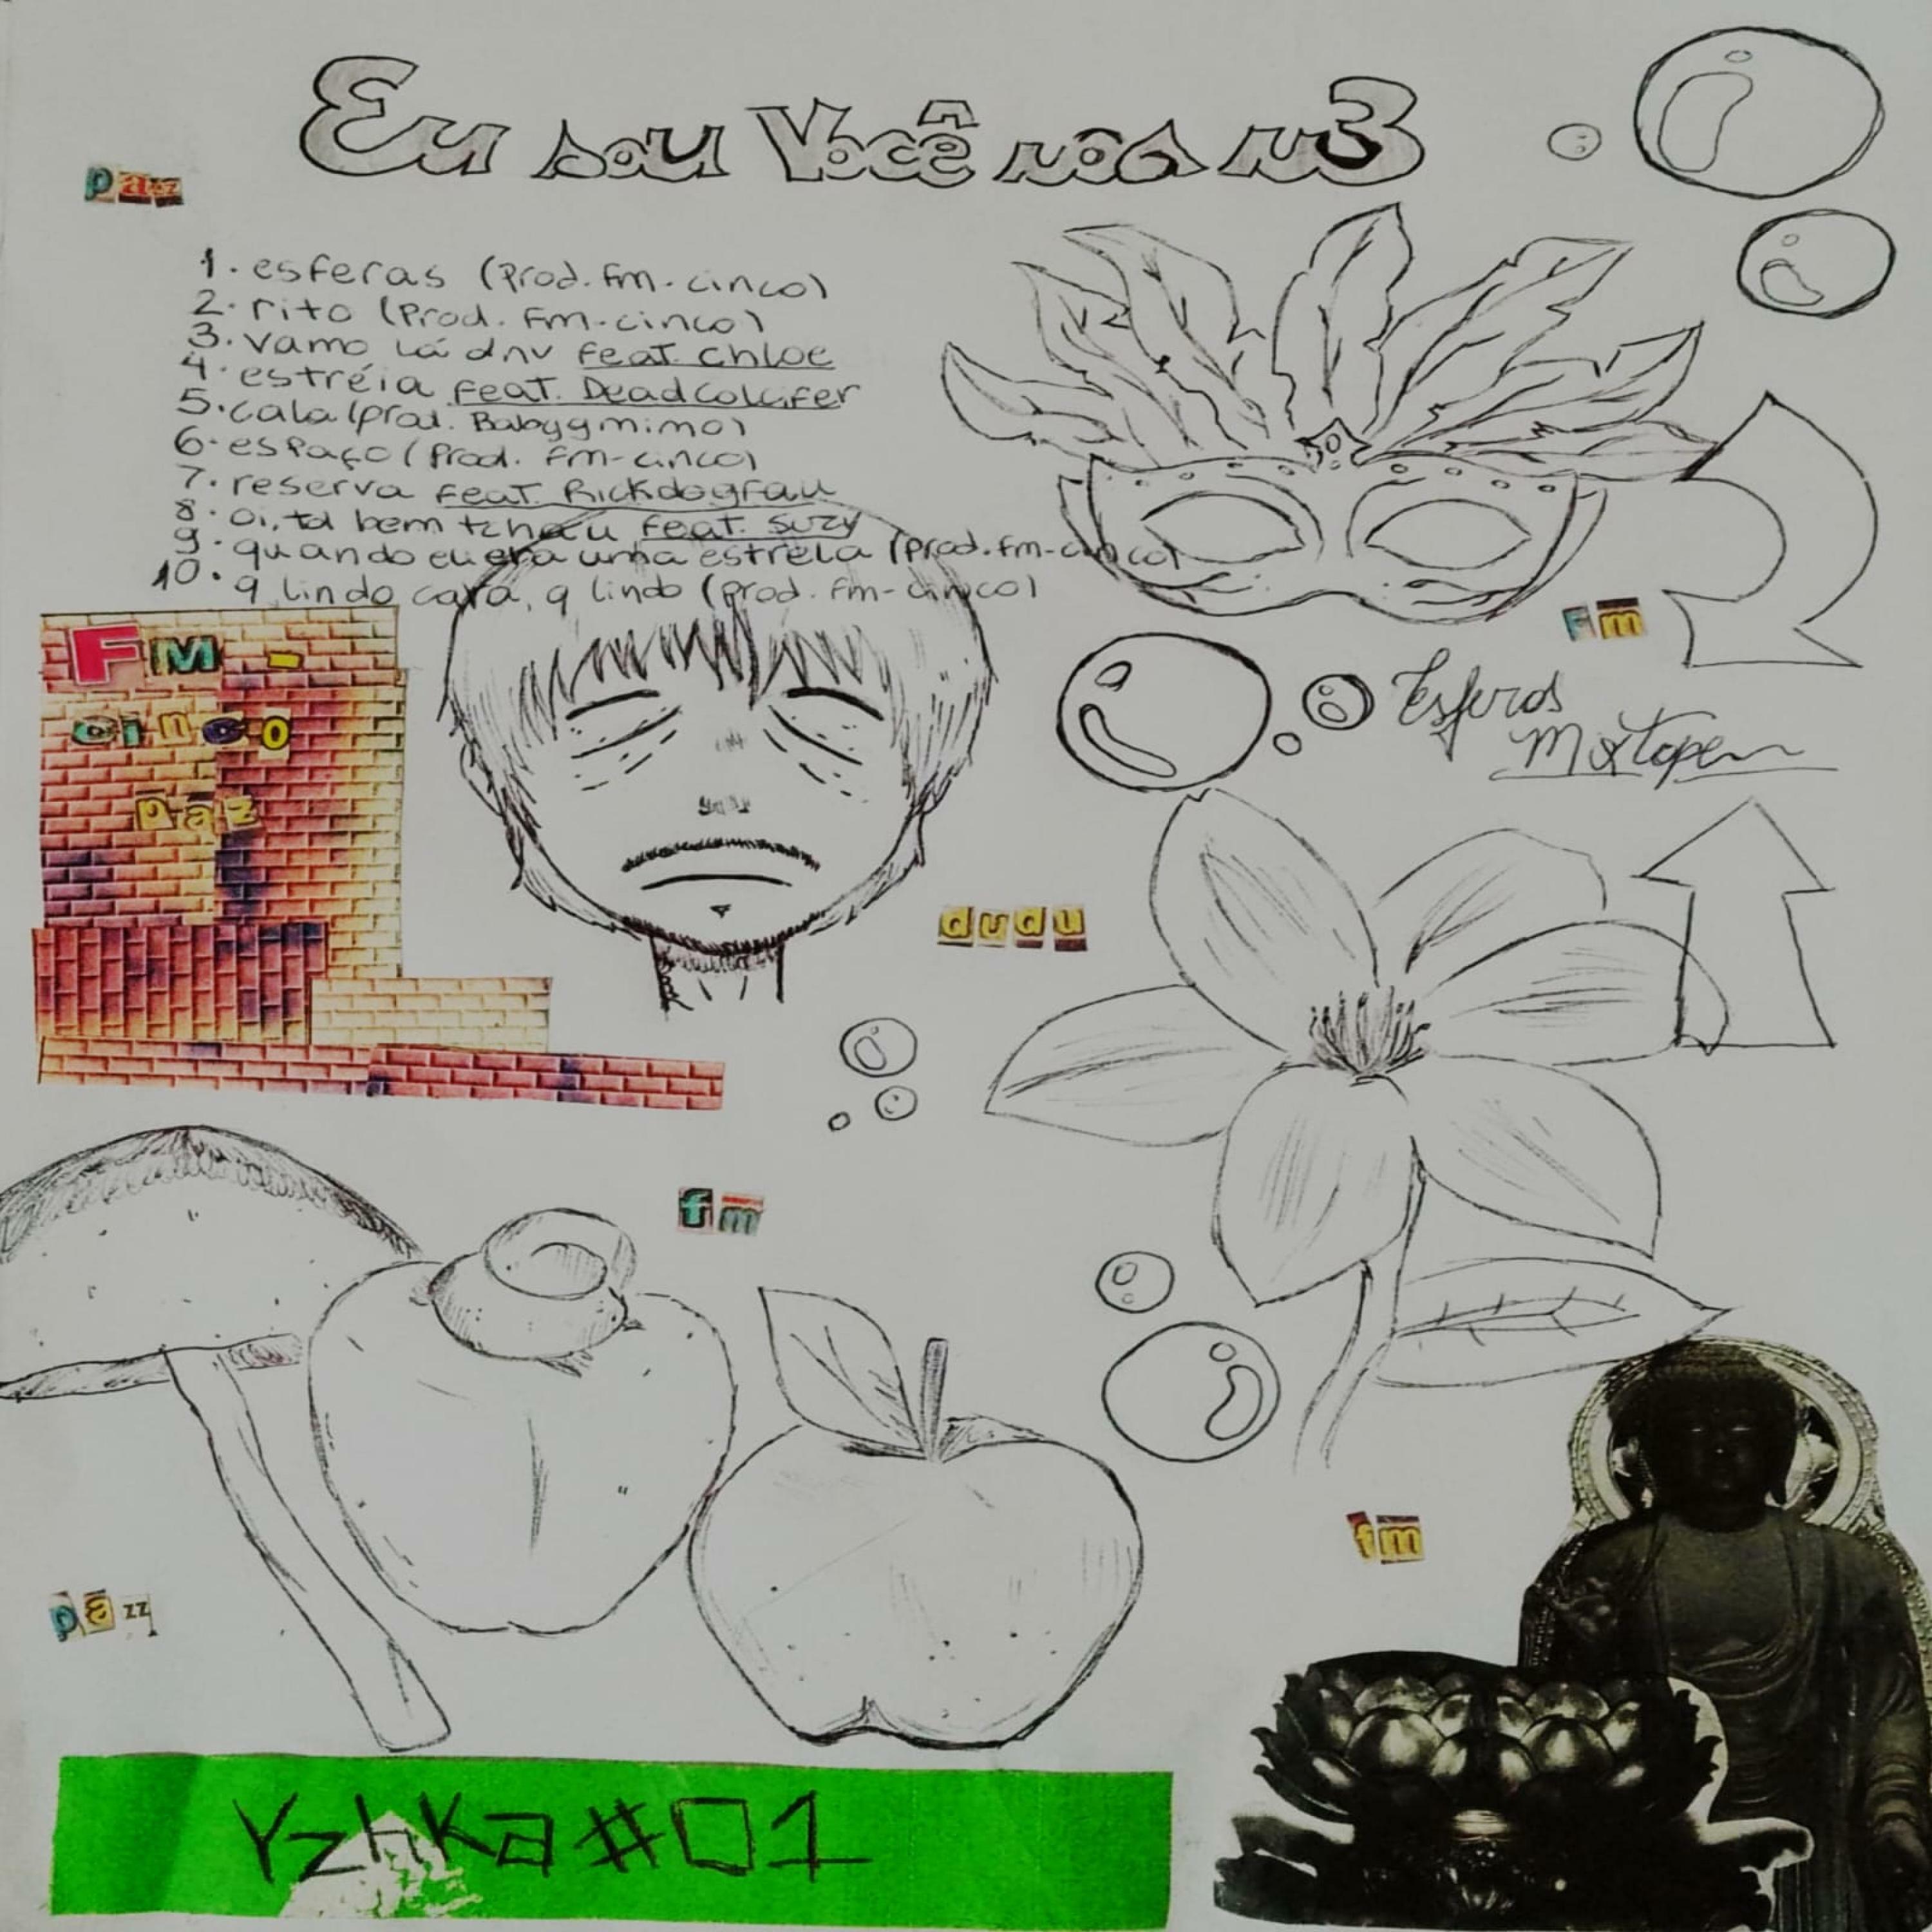 Eu sou Você nos n3
paz
1. esferas (Prod. fm-cinco)
2. rito (Prod. Fm-cinco)
3. vamo lá dnv feat. chloe
4. estréia feat. Deadcolcifer
5. cala (prod. Babyggmimo)
6. espaço (Prod. fm-cinco)
7. reserva feat. Rickdogfau
8. oi, td bem tchau feat. suzy
9. quando eu era uma estrela (prod. fm-cinco)
10. q lindo cara, q lindo (prod. fm-cinco)
Fm
FM-
cinco
paz
Esferas
Mixtape
dudu
fm
fm
pazz
Yzhka#01